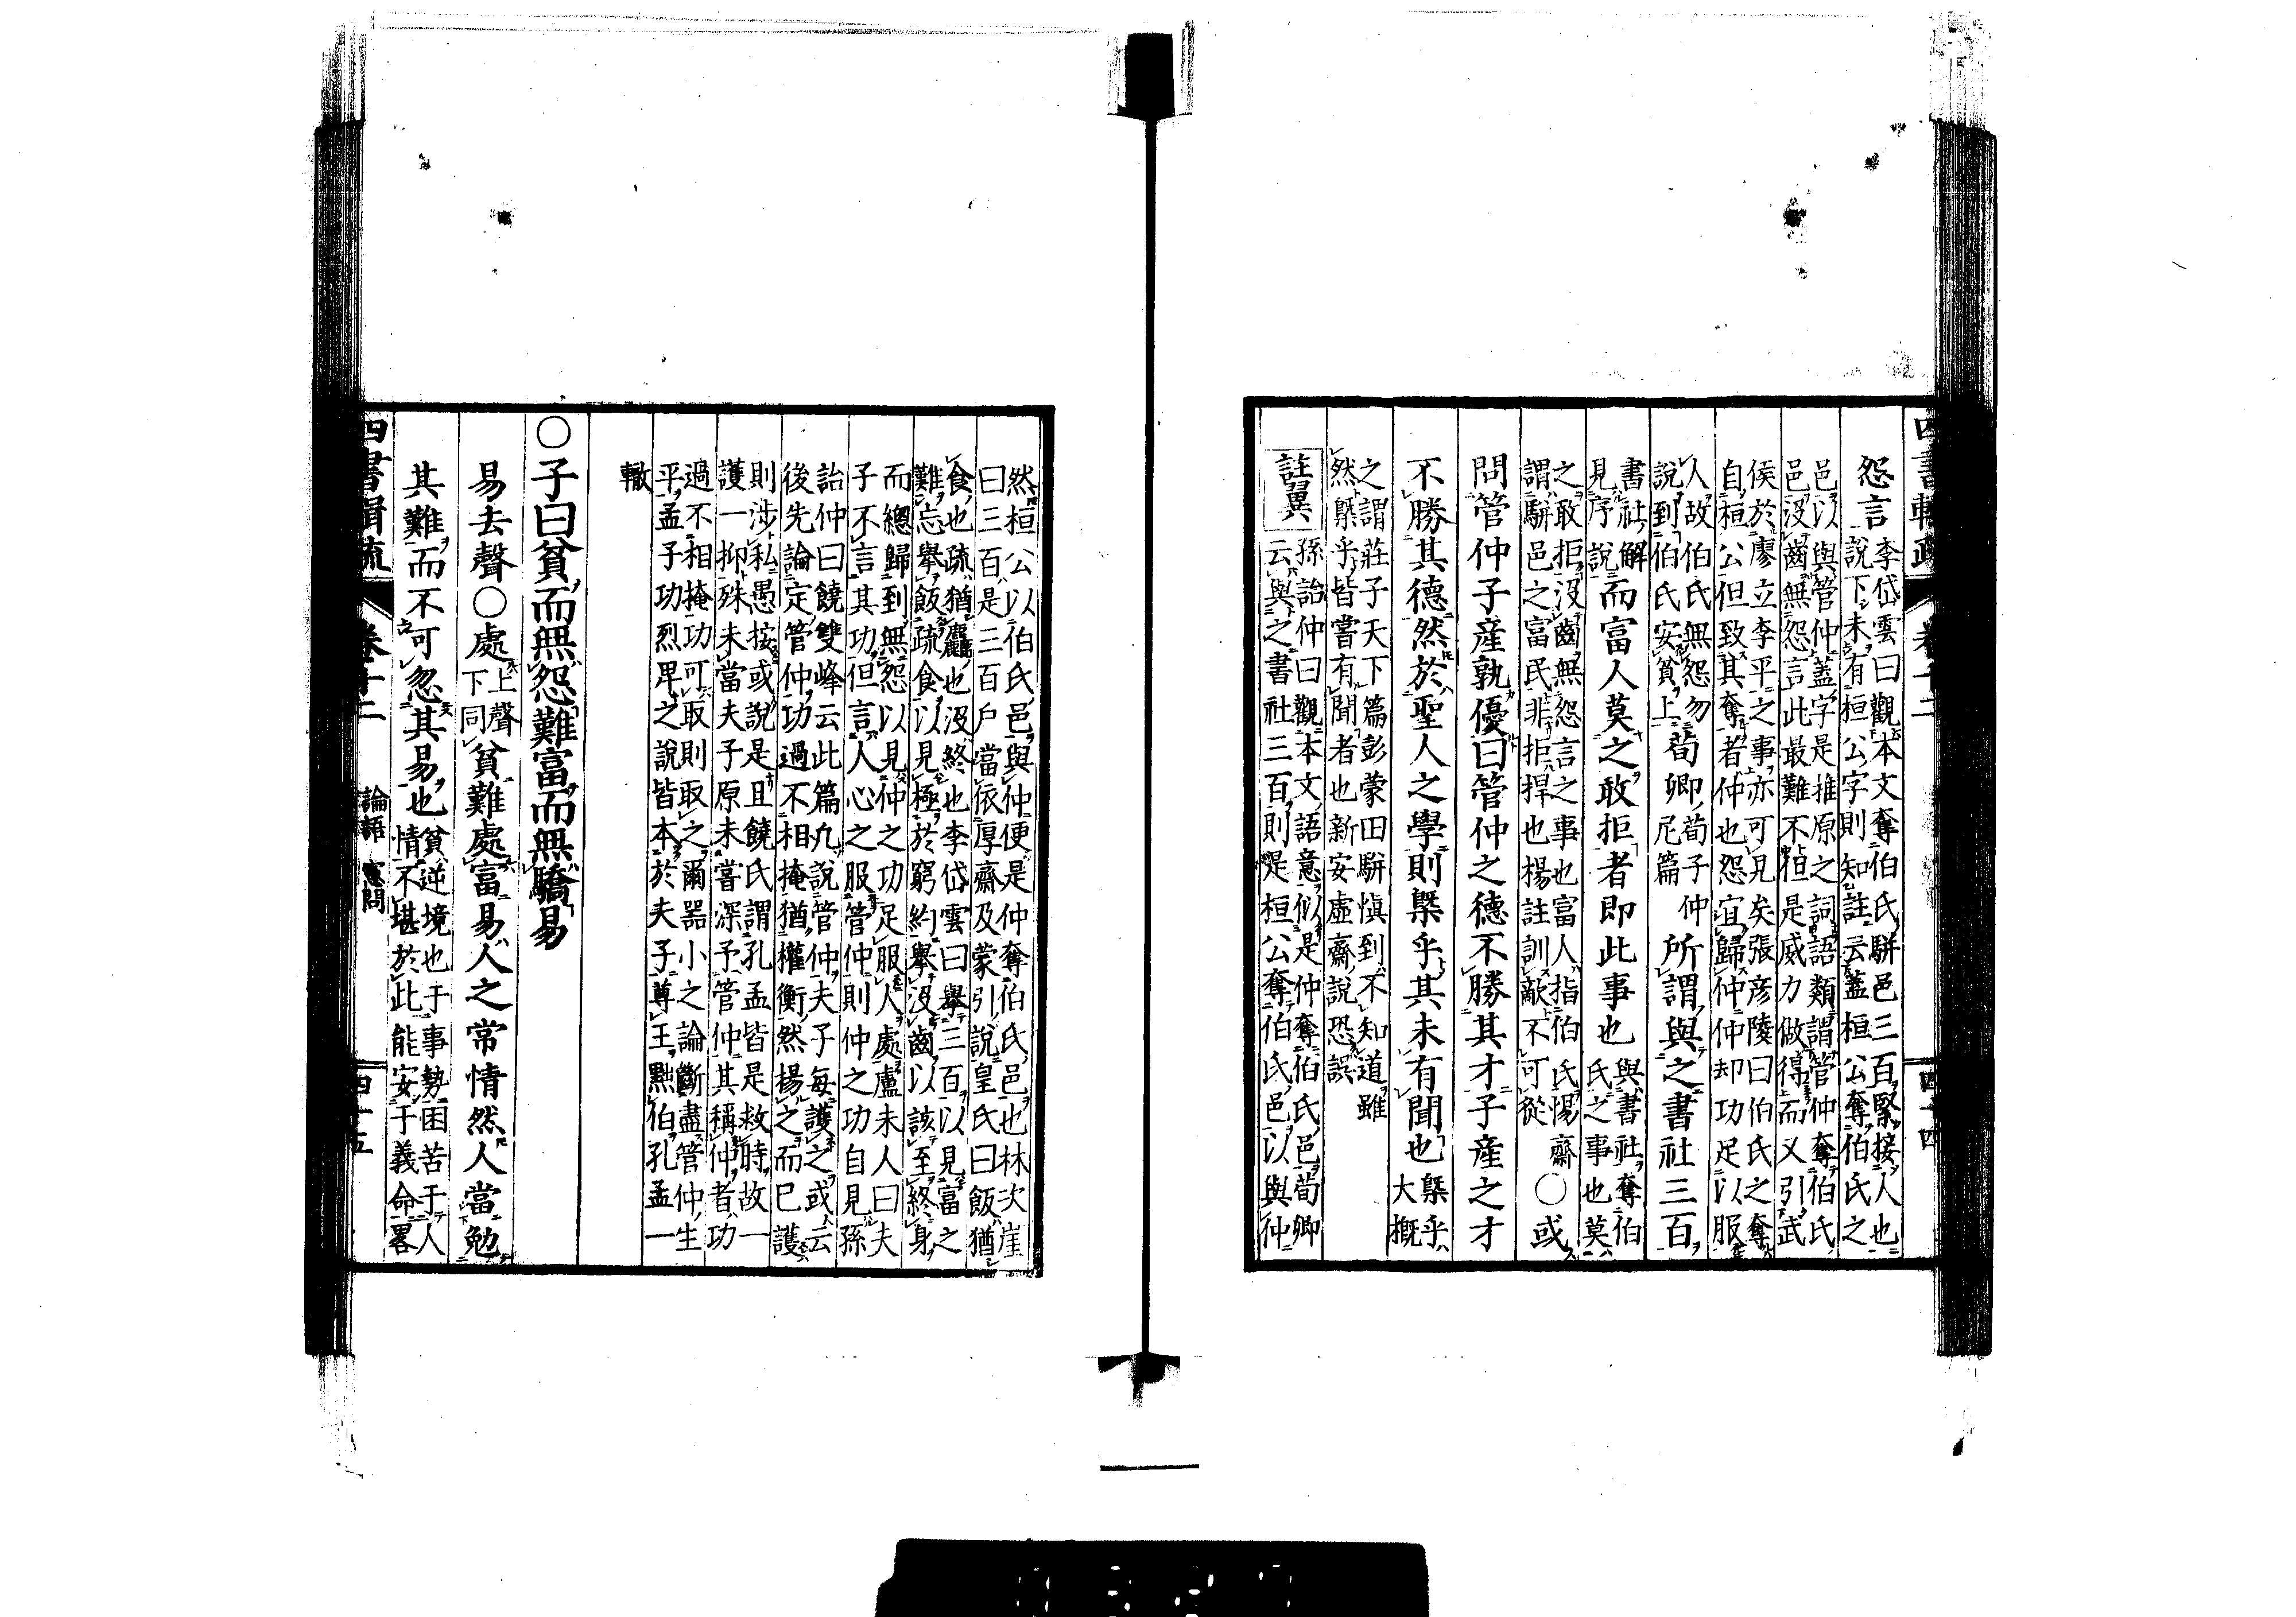 怨言
李岱雲曰觀本文奪伯氏駢邑三百緊接人也
說下未有桓公字則知註云蓋桓公奪伯氏之
邑以與管仲蓋字是推原之詞語類謂管仲奪伯氏
邑沒齒無怨言此最難不但是威力做得而又引武
侯於廖立李平之事亦可見矣張彥陵曰伯氏之奪
自桓公但致其奪者仲也怨宜歸仲仲却功足以服
人故伯氏無怨勿
說到伯氏安貧上
荀卿
荀子仲
尼篇
仲
所謂與之書社三百
書社解
見序說
而富人莫之敢拒者即此事也
與書社奪伯
氏之事也莫
之敢拒沒齒無怨言之事也富人指伯氏惕齋
謂駢邑之富民非拒捍也楊註訓敵不可從
〇或
問管仲子產孰優曰管仲之德不勝其才子產之才
不勝其德然於聖人之學則槩乎其未有聞也
槩乎
大概
之謂莊子天下篇彭蒙田駢慎到不知道雖
然槩乎皆嘗有聞者也新安虛齋說恐誤
註翼
孫詒仲曰觀本文語意似是仲奪伯氏邑荀卿
云與之書社三百則是桓公奪伯氏邑以與仲
然桓公以伯氏邑與仲便是仲奪伯氏邑也林次崖
曰三百是三百戶當依厚齋及蒙引說皇氏曰飯猶
食也疏猶麤也沒終也李岱雲曰舉三百以見富之
難忘舉飯疏食以見極於窮約舉沒齒以該至終身
而總歸到無怨以見仲之功足服人處盧未人曰夫
子不言其功但言人心之服管仲則仲之功自見孫
詒仲曰饒雙峰云此篇九說管仲夫子每護之或云
後先論定管仲功過不相掩猶權衡然揚之而已護
則涉私愚按或說是且饒氏謂孔孟皆是救時故一
護一抑殊未當夫子原未嘗深予管仲其稱仲者功
過不相掩功可取則取之爾器小之論斷盡管仲生
平孟子功烈卑之說皆本於夫子尊王黜伯孔孟一
轍
〇子曰貧而無怨難富而無驕易
易去聲〇處
上聲
下同
貧難處富易人之常情然人當勉
其難而不可忽其易也
貧逆境也于事勢困苦于人
情不堪於此能安于義命畧
四書輯疏 卷十二 論語 憲問 四十五